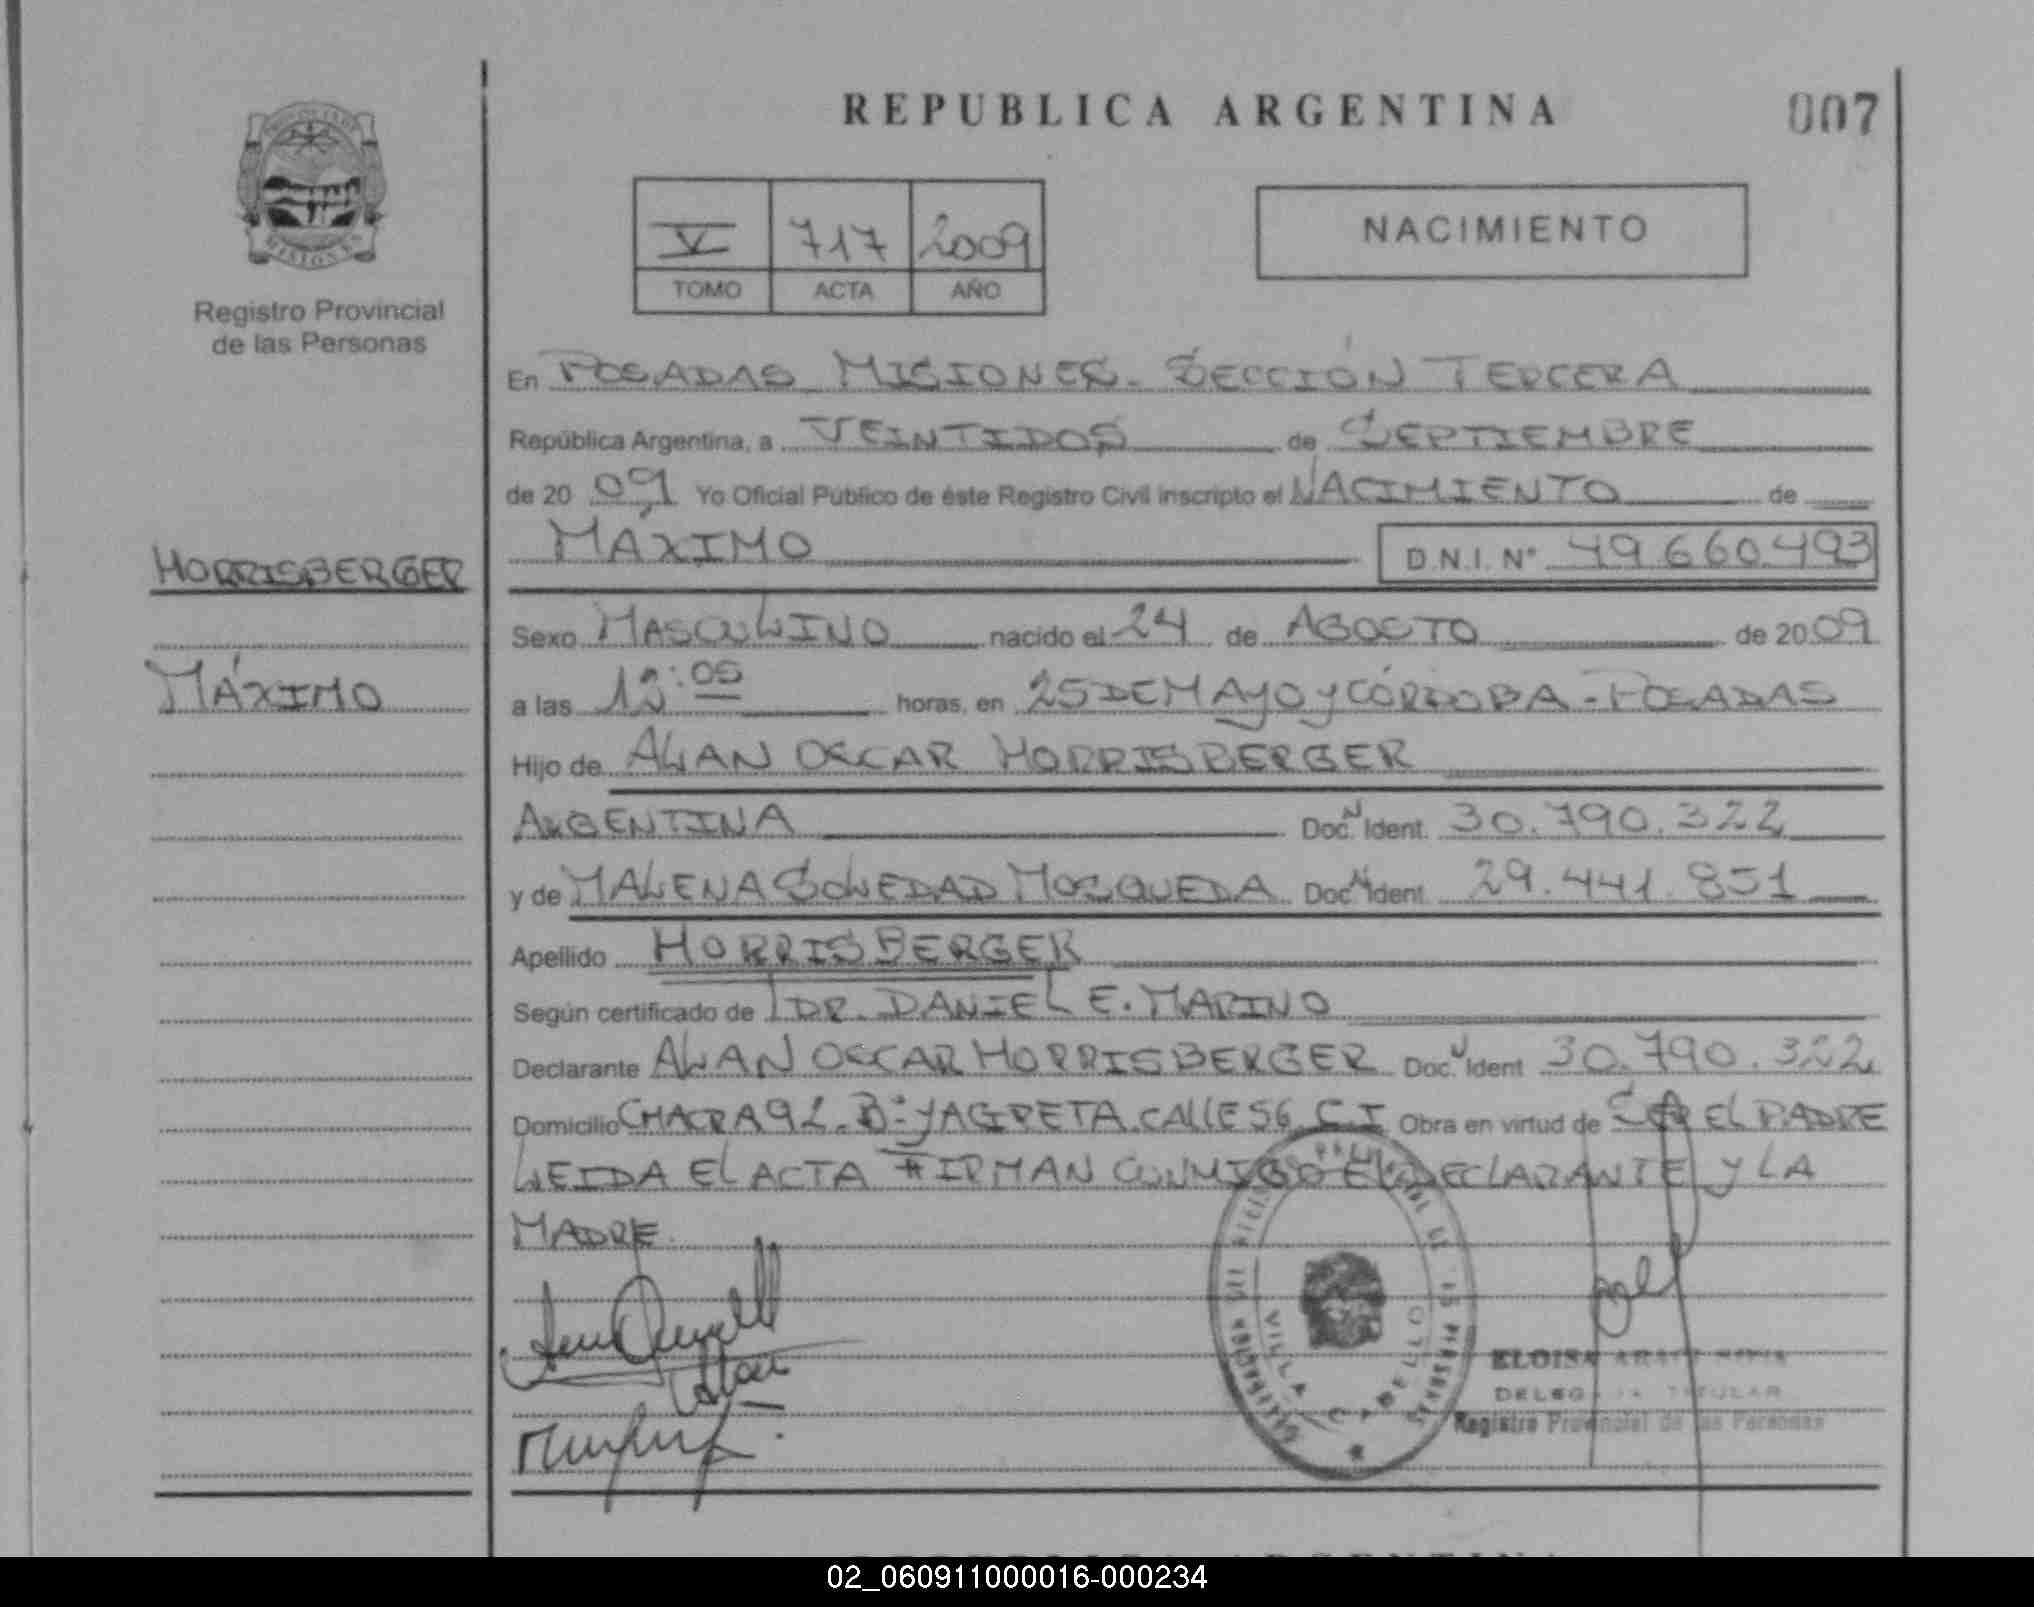 REPUBLICA ARGENTINA
007
V 717 2009
TOMO ACTA AÑO
NACIMIENTO
MISIONES
Registro Provincial
de las Personas
En POSADAS MISIONES. SECCIÓN TERCERA
República Argentina, a VEINTIDOS de SEPTIEMBRE
de 20 09 Yo Oficial Público de éste Registro Civil inscripto el NACIMIENTO de
MÁXIMO D.N.I. Nº 49.660.493
HORRISBERGER
MÁXIMO
Sexo MASCULINO nacido el 24 de AGOSTO de 20 09
a las 12:05 horas, en 25 DE MAYO y CÓRDOBA - POSADAS
Hijo de ALAN OSCAR HORRISBERGER
ARGENTINA Doc. N Ident. 30.790.322
y de MALENA SOLEDAD MOSQUEDA Doc. N Ident. 29.441.851
Apellido HORRISBERGER
Según certificado de DR. DANIEL E. MARINO
Declarante ALAN OSCAR HORRISBERGER Doc. N Ident 30.790.322
Domicilio CHACRA 92. Bº YACIRETA. CALLE 56 Obra en virtud de SER EL PADRE
LEIDA EL ACTA FIRMAN CONMIGO EL DECLARANTE y LA
MADRE.
VILLA CABELLO
ELOISA
DELEGADA TITULAR
Registro Provincial de las Personas
02_060911000016-000234